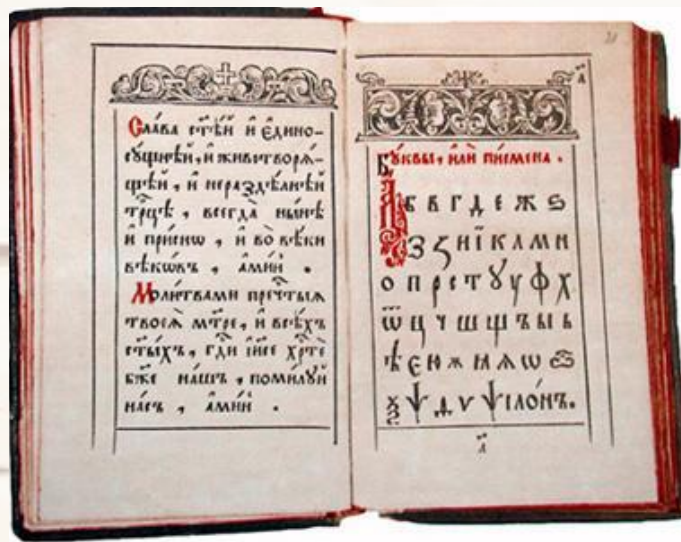 Сла́ва ст҃ѣ́й и҆ є҆дино-
сꙋ́щнѣй, и҆ животворѧ́-
щѣй, и҆ нераздѣ́лнѣй
трⷪ҇цѣ, всегда̀ ны́нѣ
и҆ при́снѡ, и҆ во вѣ́ки
вѣкѡ́въ, а҆ми́нь.
Моли́твами пречⷭ҇тыѧ
твоеѧ̀ мт҃ре, и҆ всѣ́хъ
ст҃ы́хъ, гдⷭ҇и і҆и҃се хрⷭ҇тѐ
бж҃е на́шъ, поми́лꙋй
на́съ, а҆ми́нь.
Бꙋ́квы, и҆лѝ пи́смена.
А Б В Г Д Е Ж Ѕ
З Ꙁ Н Ї К Л М Н
О П Р С Т Ꙋ Ѵ Ф Х
Ѿ Ц Ч Ш Щ Ъ Ы Ь
Ѣ Є Ю Ѫ Ѧ Ѡ
Ѯ Ѱ Ѵ Ѱіло́нъ.